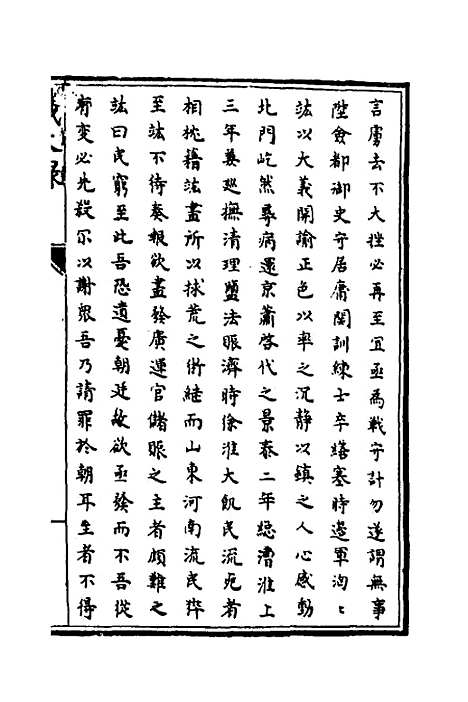 言虜去不大挫必再至宜亟為戰守計勿遂謂無事
陞僉都御史守居庸関訓練士卒繕塞時邉軍洶〻
竑以大義開諭正色以率之沉静以鎮之人心感動
北門屹然尋病還京蕭啓代之景泰二年緫漕淮上
三年兼廵撫清理鹽法賑濟時徐淮大飢民流死者
相枕藉竑盡所以捄荒之術继而山東河南流民猝
至竑不待奏報欲盡發廣運官儲賑之主者頗難之
竑曰民窮至此吾恐遺憂朝廷故欲亟發而不吾從
脊变必先殺尔以謝衆吾乃請罪於朝耳主者不得